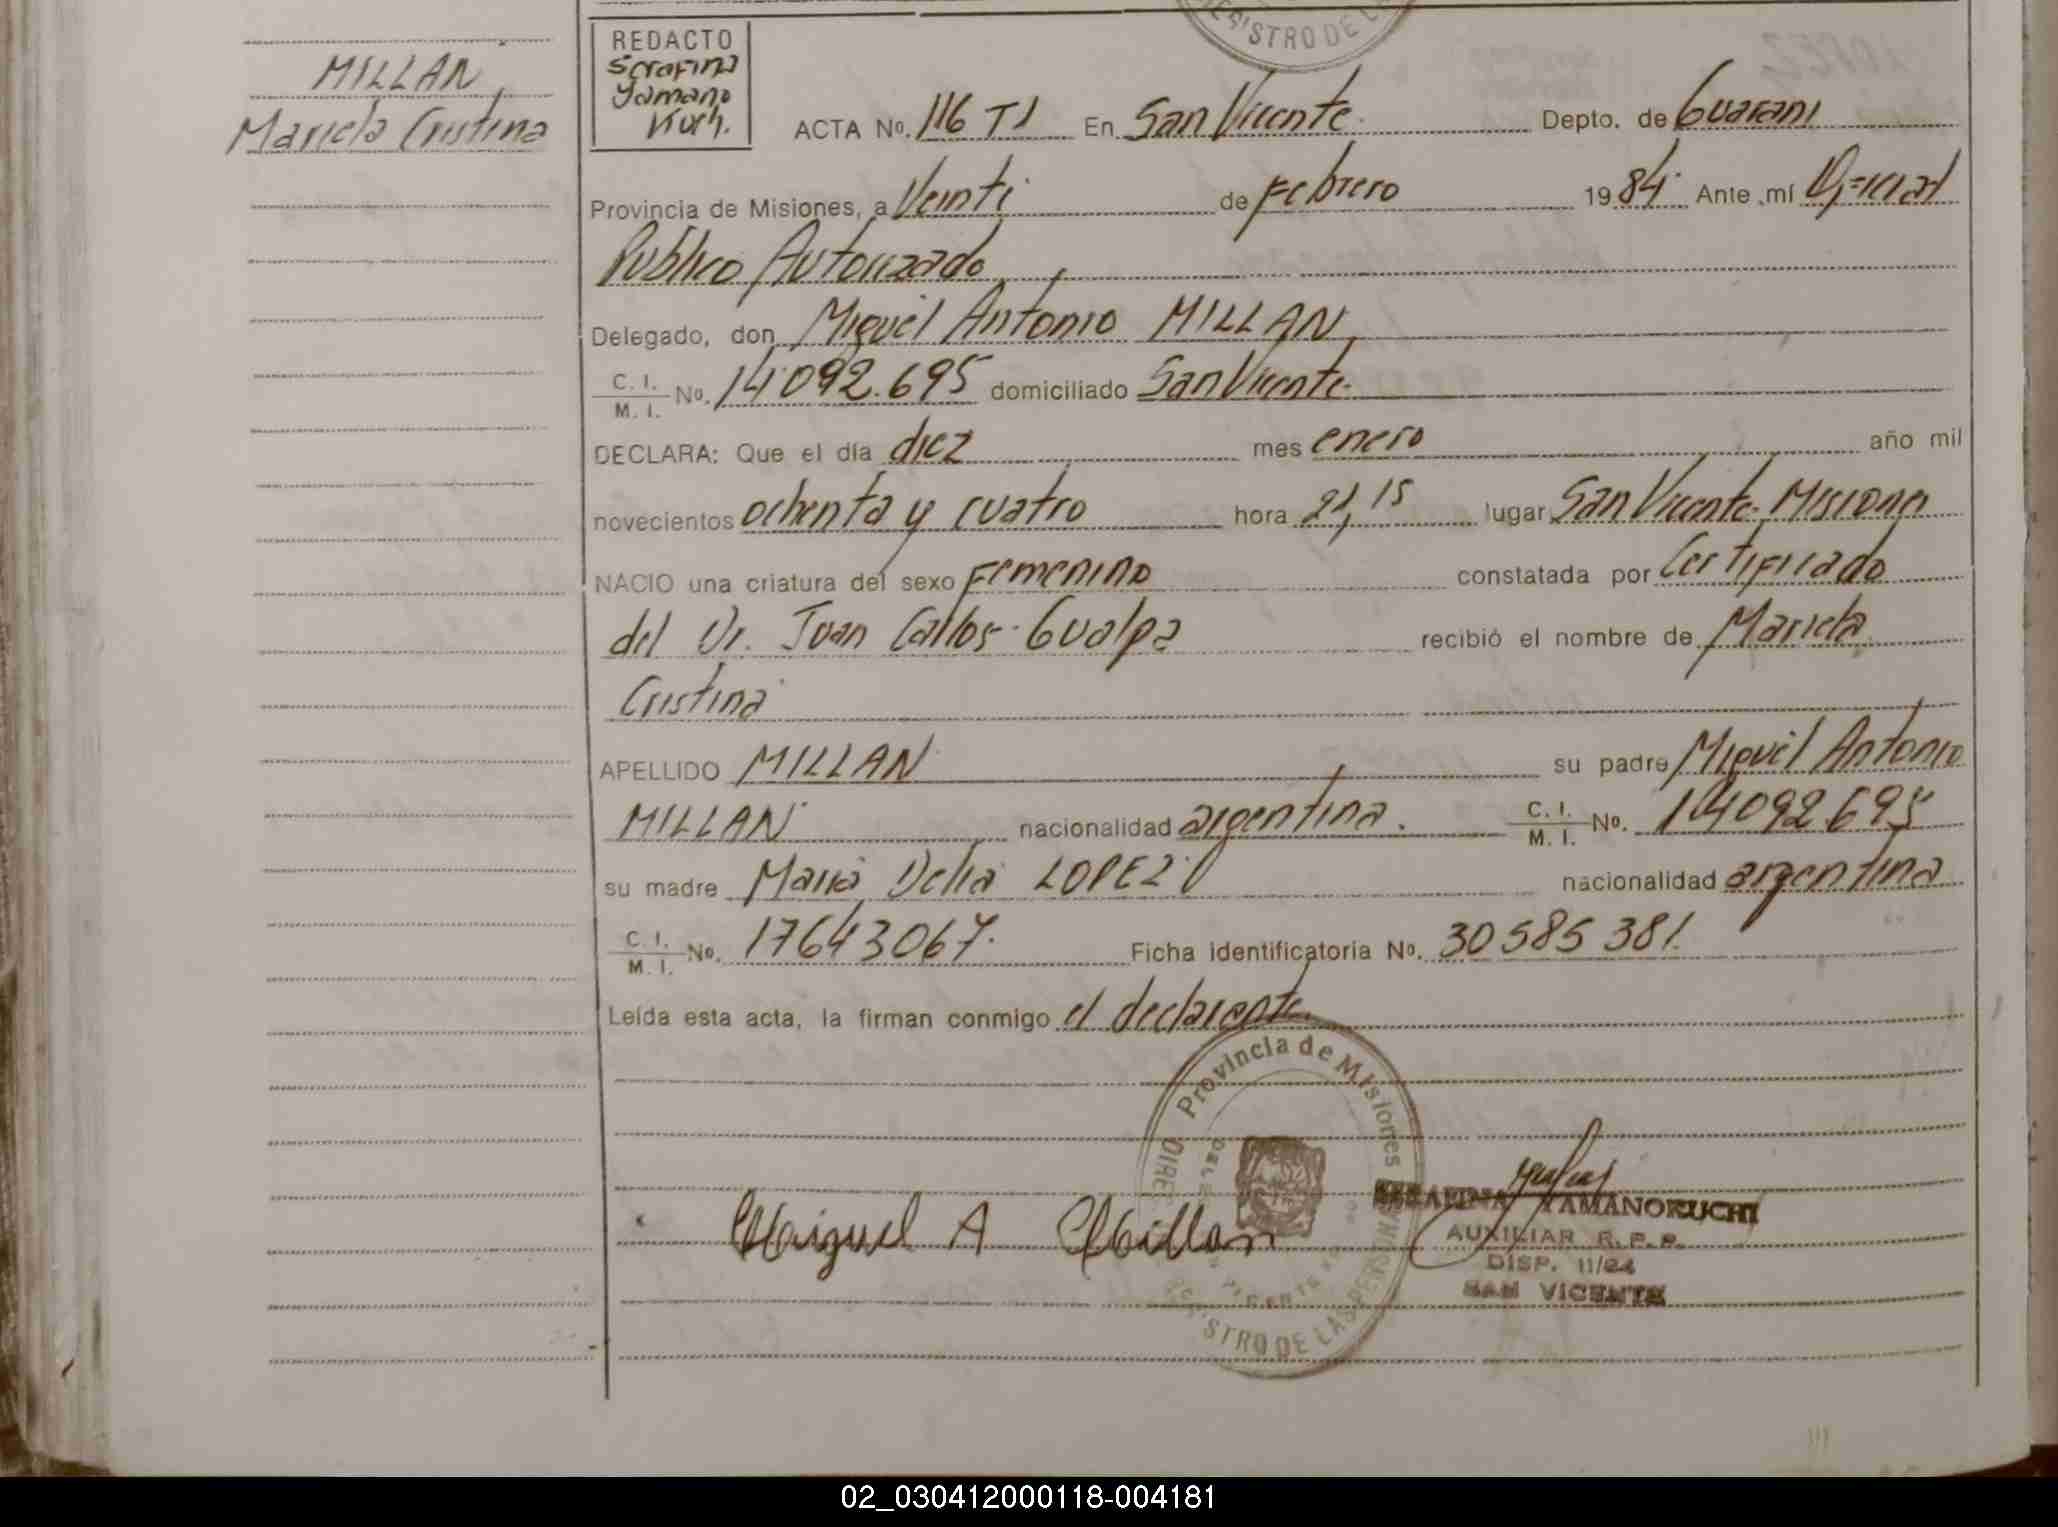 MILLAN
Mariela Cristina
REDACTO
Serafina
Yamano
Kuch.
ISTRO DE LA
ACTA No. 116 T1 En San Vicente. Depto. de Guarani
Provincia de Misiones, a Veinti de Febrero 1984. Ante mí Oficial
Publico Autorizado
Delegado, don Miguel Antonio MILLAN
C. I. / M. I. No. 14092.695 domiciliado San Vicente.
DECLARA: Que el día diez mes enero año mil
novecientos ochenta y cuatro hora 21,15 lugar San Vicente. Misiones
NACIO una criatura del sexo Femenino constatada por Certificado
del Dr. Juan Carlos Gualpa recibió el nombre de Mariela
Cristina
APELLIDO MILLAN su padre Miguel Antonio
MILLAN nacionalidad argentina. C. I. / M. I. No. 14092695
su madre Maria Delia LOPEZ nacionalidad argentina
C. I. / M. I. No. 17643067. Ficha identificatoria No. 30585381.
Leída esta acta, la firman conmigo el declarante
Provincia de Misiones
Miguel A Millan
SERAFINA YAMANOKUCHI
AUXILIAR R.P.P.
DISP. 11/84
SAN VICENTE
STRO DE LAS PERSONAS
02_030412000118-004181